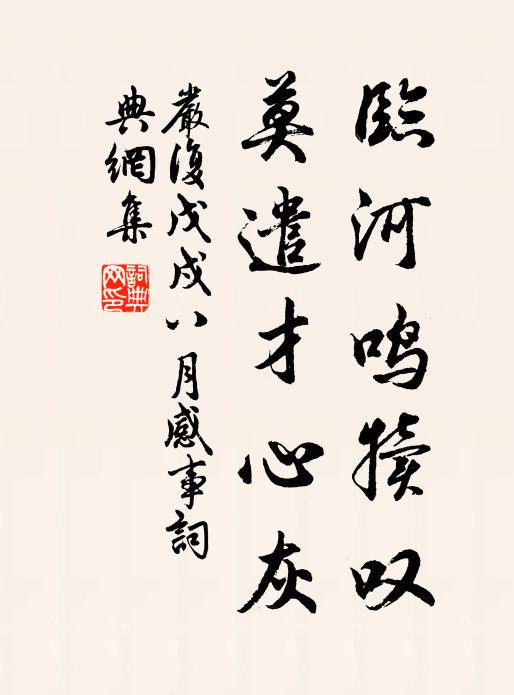 臨河鳴犢叹
莫遣才心灰
嚴復戊戌八月感事詞
典網集
詞典網印